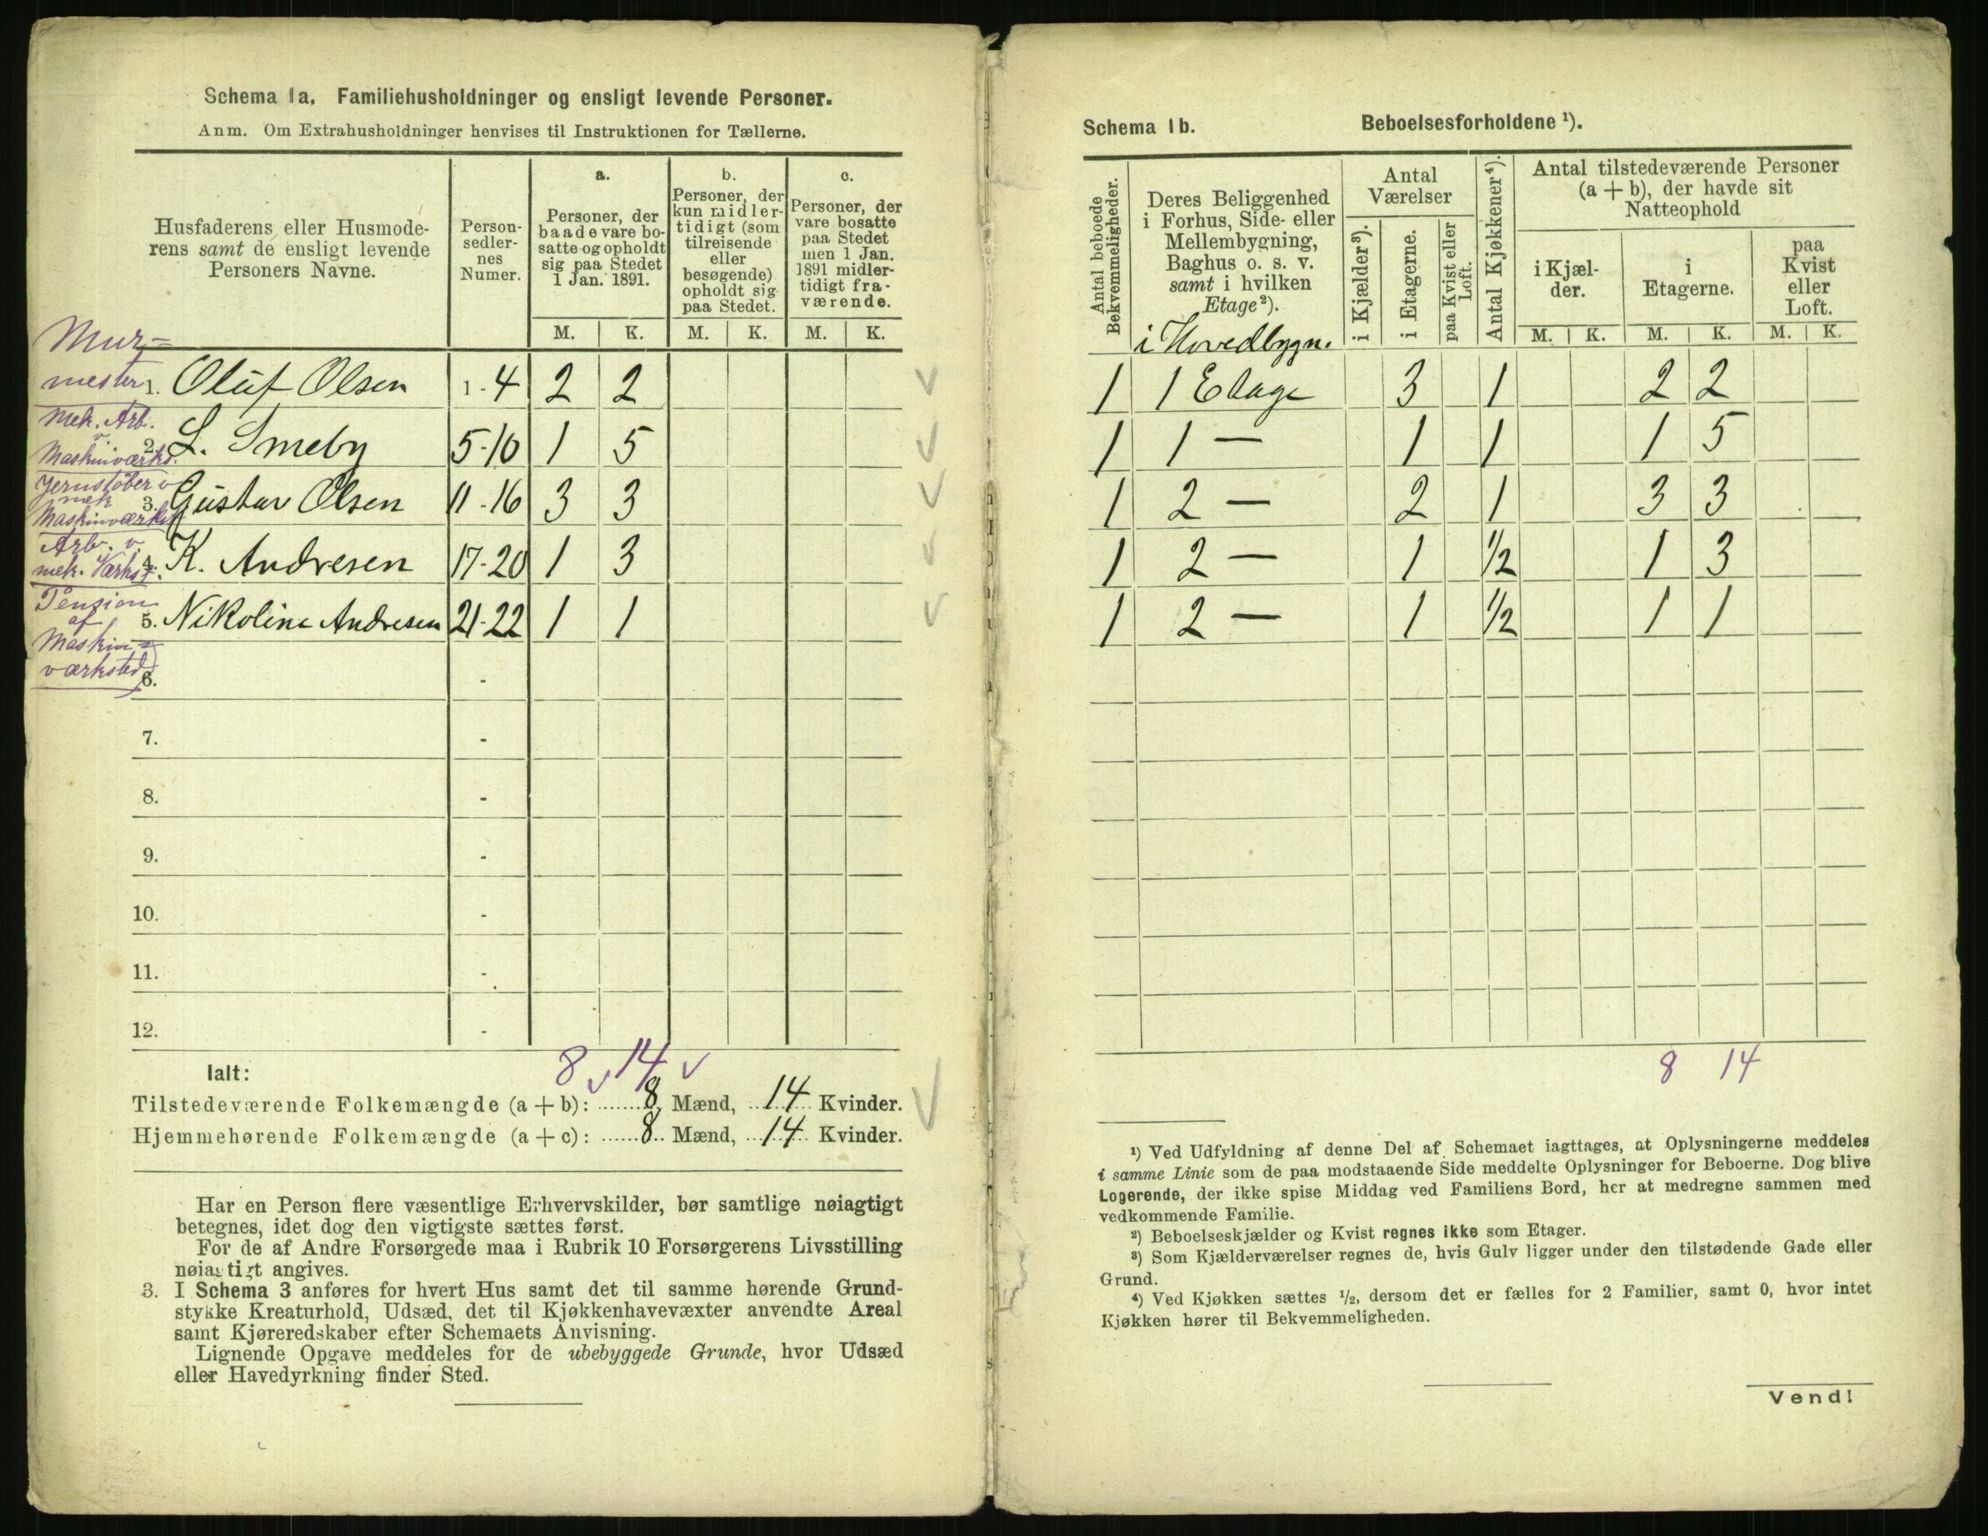 Schema 1a. Familiehusholdninger og ensligt levende Personer.
Anm. Om Extrahusholdninger henvises til Instruktionen for Tællerne.
Husfaderens eller Husmode-
rens samt de ensligt levende
Personers Navne.
Person-
sedler-
nes
Numer.
a.
Personer, der
baade vare bo-
satte og opholdt
sig paa Stedet
1 Jan. 1891.
b.
Personer, der
kun midler-
tidigt (som
tilreisende
eller
besøgende)
opholdt sig
paa Stedet.
c.
Personer, der
vare bosatte
paa Stedet
men 1 Jan.
1891 midler-
tidigt fra-
værende.
M. K. M. K. M. K.
Mur-
mester 1. Oluf Olsen 1-4 2 2
Mek. Arb.
v.
Maskinværks. 2. L. Smeby 5-10 1 5
Jernstøber v
mek
Maskinværkst 3. Gustav Olsen 11-16 3 3
Arb. v.
mek. Værkst. 4. K. Andresen 17-20 1 3
Pension
af
Maskin-
værksted
5. Nikoline Andresen 21-22 1 1
6. -
7. -
8. -
9. -
10. -
11. -
12. -
8 14
Ialt:
Tilstedeværende Folkemængde (a + b): 8 Mænd, 14 Kvinder.
Hjemmehørende Folkemængde (a + c): 8 Mænd, 14 Kvinder.
Har en Person flere væsentlige Erhvervskilder, bør samtlige nøiagtigt
betegnes, idet dog den vigtigste sættes først.
For de af Andre Forsørgede maa i Rubrik 10 Forsørgerens Livsstilling
nøiagtigt angives.
3. I Schema 3 anføres for hvert Hus samt det til samme hørende Grund-
stykke Kreaturhold, Udsæd, det til Kjøkkenhavevæxter anvendte Areal
samt Kjøreredskaber efter Schemaets Anvisning.
Lignende Opgave meddeles for de ubebyggede Grunde, hvor Udsæd
eller Havedyrkning finder Sted.
Schema 1b. Beboelsesforholdene ¹).
Antal beboede
Bekvemmeligheder.
Deres Beliggenhed
i Forhus, Side- eller
Mellembygning,
Baghus o. s. v.
samt i hvilken
Etage²).
Antal
Værelser
i Kjælder³).
i Etagerne.
paa Kvist eller
Loft.
Antal Kjøkkener⁴).
Antal tilstedeværende Personer
(a + b), der havde sit
Natteophold
i Kjæl-
der.
i
Etagerne.
paa
Kvist
eller
Loft.
M. K. M. K. M. K.
i Hovedbygn.
1 1 Etage 3 1 2 2
1 1 — 1 1 1 5
1 2 — 2 1 3 3
1 2 — 1 1/2 1 3
1 2 — 1 1/2 1 1
8 14
¹) Ved Udfyldning af denne Del af Schemaet iagttages, at Oplysningerne meddeles
i samme Linie som de paa modstaaende Side meddelte Oplysninger for Beboerne. Dog blive
Logerende, der ikke spise Middag ved Familiens Bord, her at medregne sammen med
vedkommende Familie.
²) Beboelseskjælder og Kvist regnes ikke som Etager.
³) Som Kjælderværelser regnes de, hvis Gulv ligger under den tilstødende Gade eller
Grund.
⁴) Ved Kjøkken sættes 1/2, dersom det er fælles for 2 Familier, samt 0, hvor intet
Kjøkken hører til Bekvemmeligheden.
Vend!